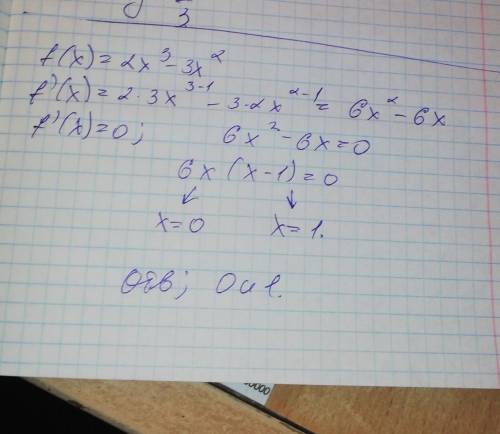 3
f(x) = 2x³ - 3x²
f'(x) = 2·3x³⁻¹ - 3·2x²⁻¹ = 6x² - 6x
f'(x) = 0; 6x² - 6x = 0
6x (x - 1) = 0
↙ ↓
x = 0 x = 1.
Отв; 0 и 1.
0000